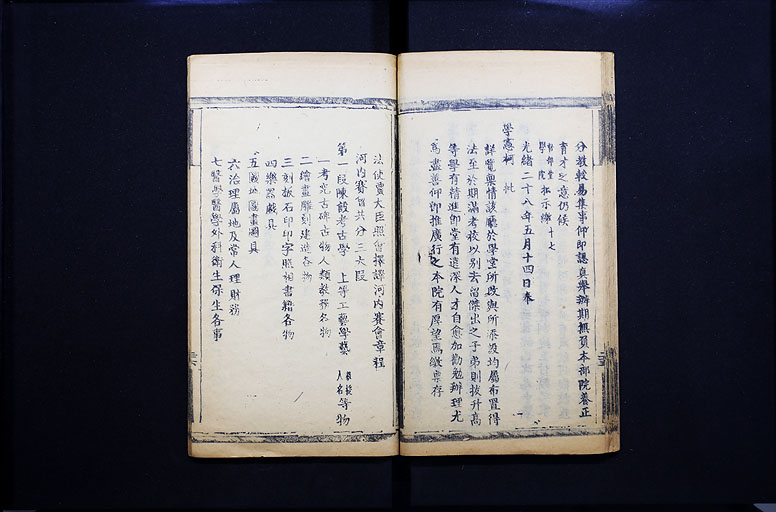 分教較易集事仰即認真舉辦期無負本部院養正
育才之意仍候
督部堂
學院批示繳十七
光緒二十八年五月十四日奉
學憲柯 批
詳覽稟情該廳於學堂所改與所添設均屬布置得
法至於期滿考校以別去留傑出之子弟則拔升高
等學有精進師堂有造深人才自愈加勸勉辦理尤
為盡善仰即推廣行之本院有厚望焉繳稟存
法使賈大臣照會擇譯河內賽會章程
河內賽會共分三大段
第一段陳設考古學 上等工藝學藝 等物
一考究古碑古物人類數種各物
二繪畫雕刻建造各物
三刻板石印印字照相書籍各物
四樂器戲具
五國地圖畫圖具
六治理屬地及常人理財務
七醫學醫學外科衛生保生各事